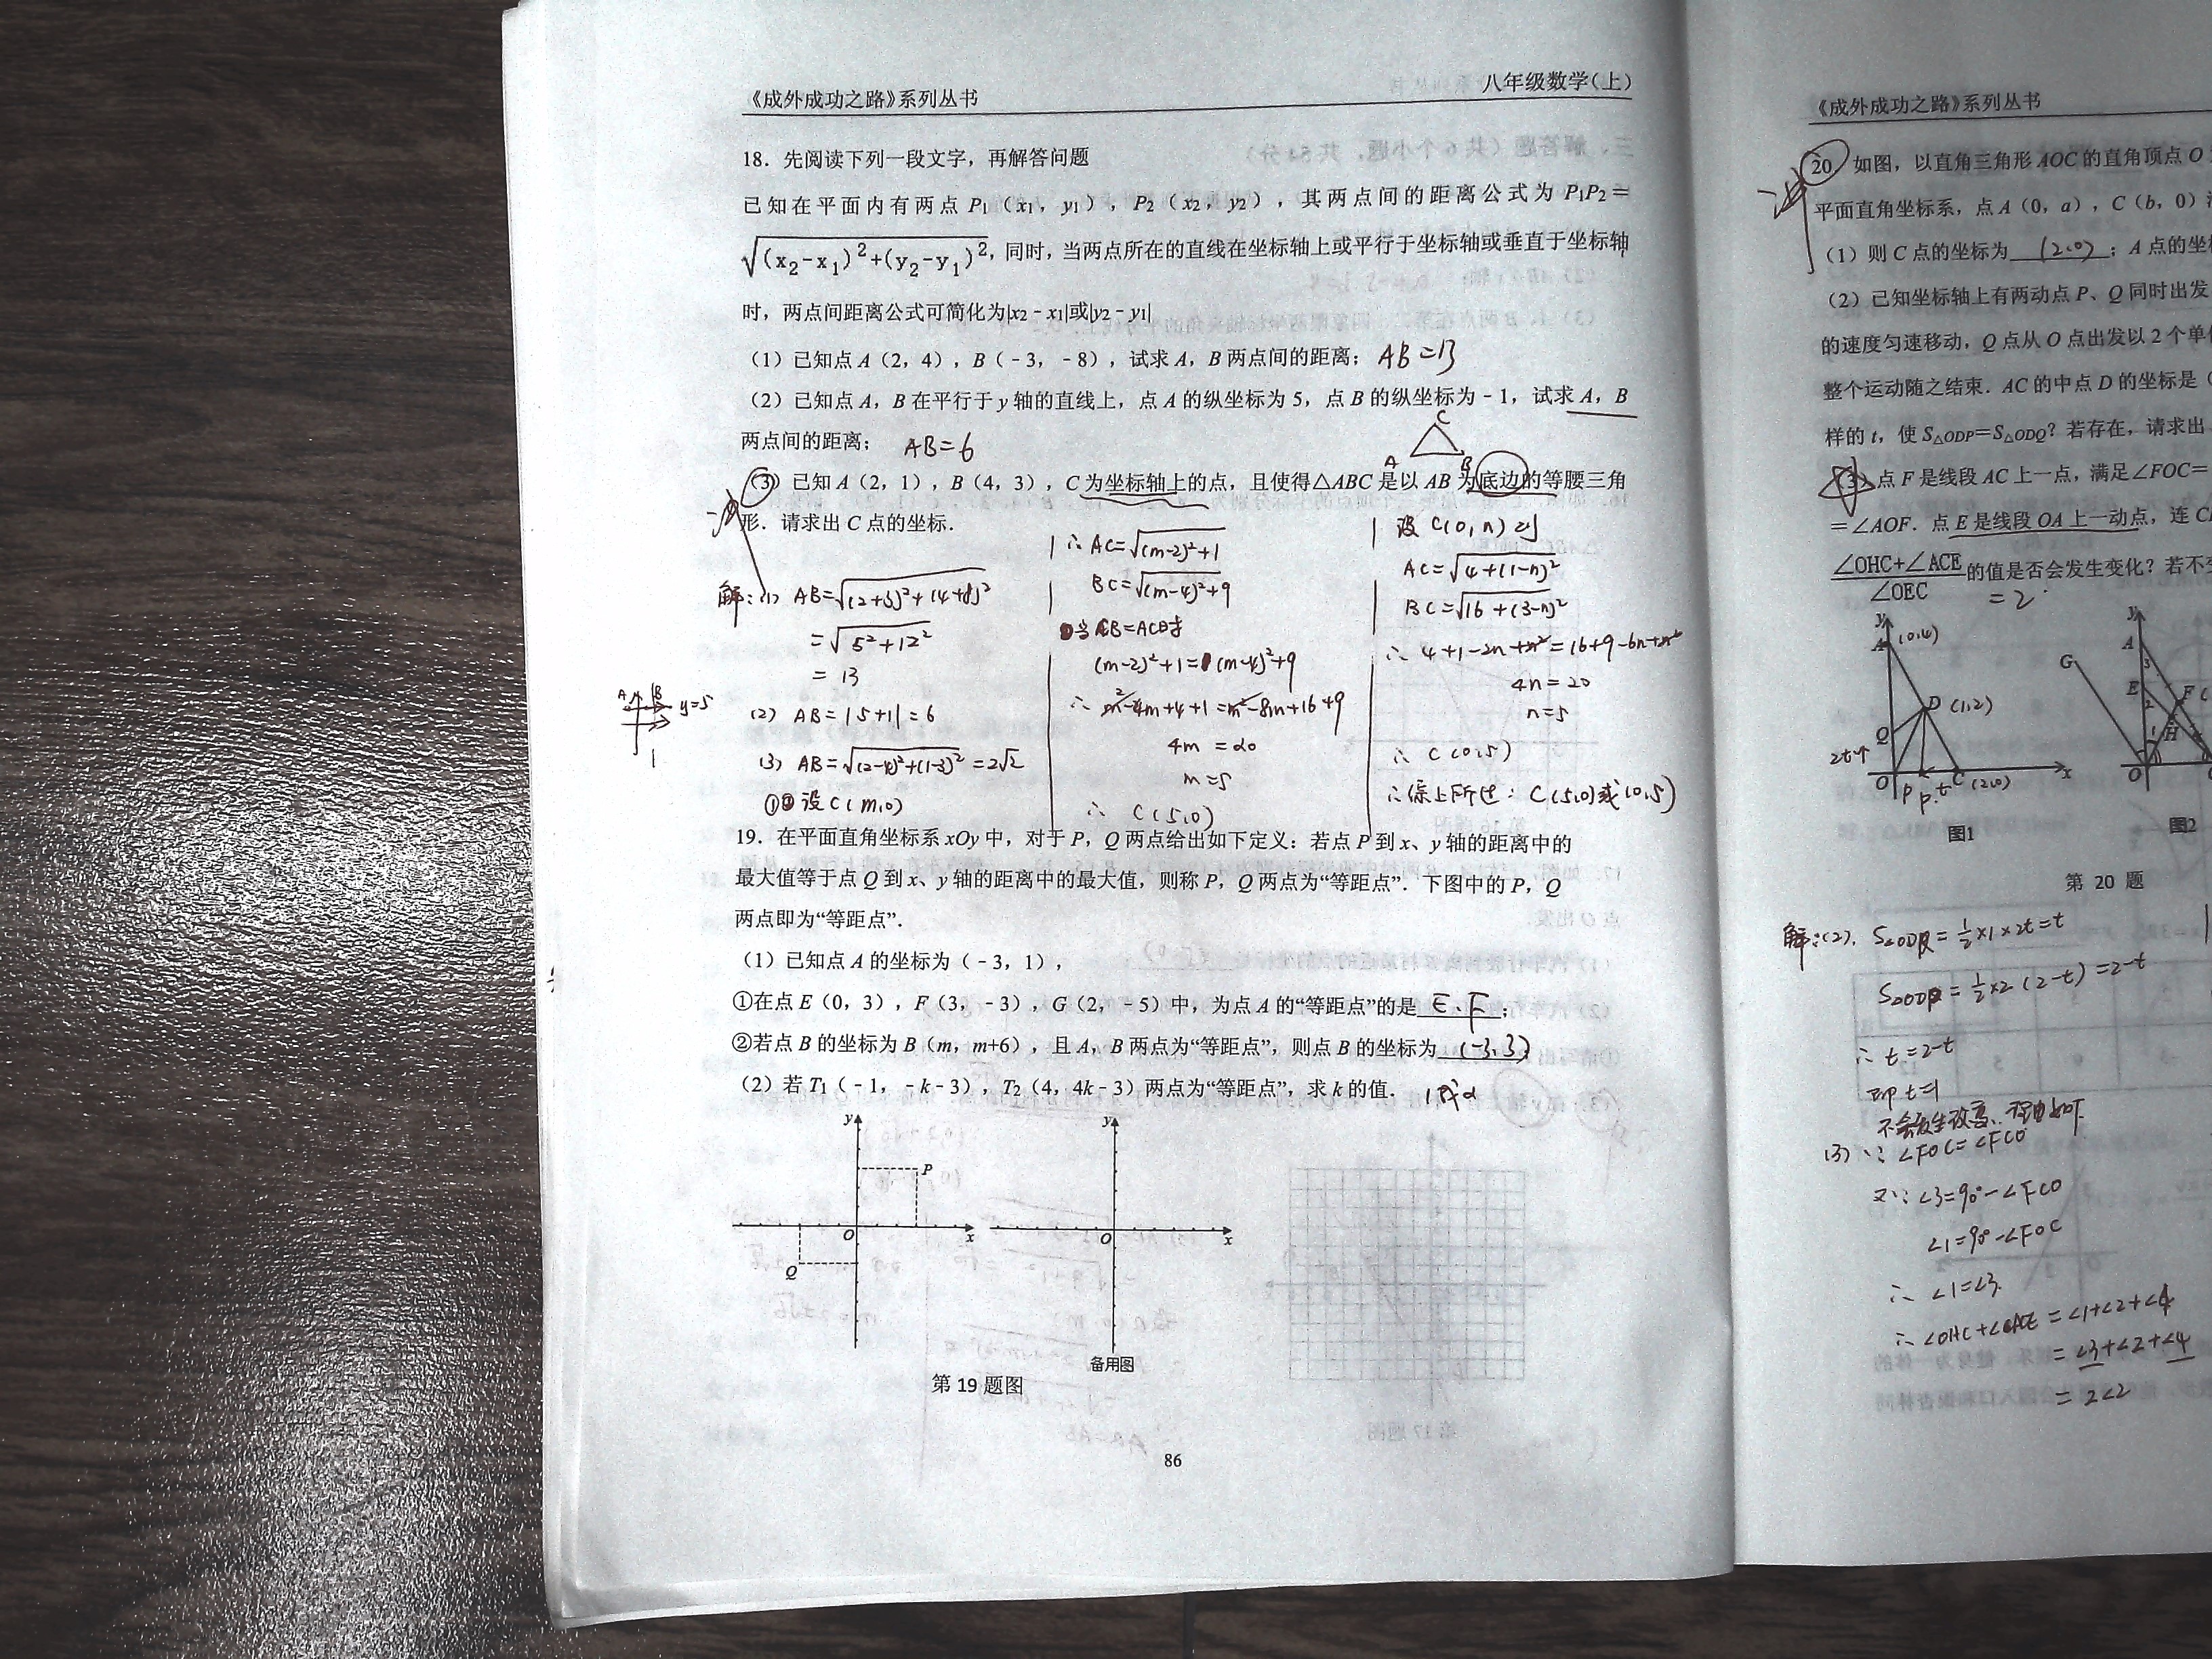 《成外成功之路》系列丛书
八年级数学(上)
18. 先阅读下列一段文字，再解答问题
已知在平面内有两点 P₁（x₁，y₁），P₂（x₂，y₂），其两点间的距离公式为 P₁P₂＝
√(x₂-x₁)²+(y₂-y₁)²，同时，当两点所在的直线在坐标轴上或平行于坐标轴或垂直于坐标轴
时，两点间距离公式可简化为|x₂﹣x₁|或|y₂﹣y₁|
（1）已知点 A（2，4），B（﹣3，﹣8），试求 A，B 两点间的距离； AB=13
（2）已知点 A，B 在平行于 y 轴的直线上，点 A 的纵坐标为 5，点 B 的纵坐标为﹣1，试求 A，B
两点间的距离； AB=6
C
A B
（3）已知 A（2，1），B（4，3），C 为坐标轴上的点，且使得△ABC 是以 AB 为底边的等腰三角
形．请求出 C 点的坐标．
解:(1) AB=√(2+3)²+(4+8)²
=√5²+12²
= 13
(2) AB=|5+1|=6
(3) AB=√(2-4)²+(1-3)²=2√2
① 设C(m,0)
A B y=5
∴ AC=√(m-2)²+1
BC=√(m-4)²+9
当CB=AC时
(m-2)²+1=(m-4)²+9
∴ m²-4m+4+1=m²-8m+16+9
4m=20
m=5
∴ C(5,0)
设C(0,n)时
AC=√4+(1-n)²
BC=√16+(3-n)²
∴ 4+1-2n+n²=16+9-6n+n²
4n=20
n=5
∴ C(0,5)
∴综上所述: C(5,0)或(0,5)
19. 在平面直角坐标系 xOy 中，对于 P，Q 两点给出如下定义：若点 P 到 x、y 轴的距离中的
最大值等于点 Q 到 x、y 轴的距离中的最大值，则称 P，Q 两点为“等距点”．下图中的 P，Q
两点即为“等距点”．
（1）已知点 A 的坐标为（﹣3，1），
①在点 E（0，3），F（3，﹣3），G（2，﹣5）中，为点 A 的“等距点”的是 E、F ；
②若点 B 的坐标为 B（m，m+6），且 A，B 两点为“等距点”，则点 B 的坐标为 (-3,3)
（2）若 T₁（﹣1，﹣k﹣3），T₂（4，4k﹣3）两点为“等距点”，求 k 的值． 1或2
y
P
O
x
Q
y
O
x
备用图
第 19 题图
86
《成外成功之路》系列丛书
20. 如图，以直角三角形 AOC 的直角顶点 O
平面直角坐标系，点 A（0，a），C（b，0）
（1）则 C 点的坐标为 (2,0) ；A 点的坐
（2）已知坐标轴上有两动点 P、Q 同时出发
的速度匀速移动，Q 点从 O 点出发以 2 个单
整个运动随之结束．AC 的中点 D 的坐标是（
样的 t，使 S△ODP＝S△ODQ？若存在，请求出
（3）点 F 是线段 AC 上一点，满足∠FOC＝
＝∠AOF．点 E 是线段 OA 上一动点，连 C
∠OHC+∠ACE
∠OEC
的值是否会发生变化？若不
=2
y
A (0,4)
D (1,2)
Q
2t
O P t C (2,0) x
图1
y
A
3
G
E
2
F
1
H
O
图2
第 20 题
解:(2). S△ODQ=½×1×2t=t
S△ODP=½×2(2-t)=2-t
∴ t=2-t
即 t=1
不会发生改变,理由如下
(3) ∵ ∠FOC=∠FCO
又∵ ∠3=90°-∠FCO
∠1=90°-∠FOC
∴ ∠1=∠3.
∴ ∠OHC+∠ACE=∠1+∠2+∠4
=∠3+∠2+∠4
=2∠2